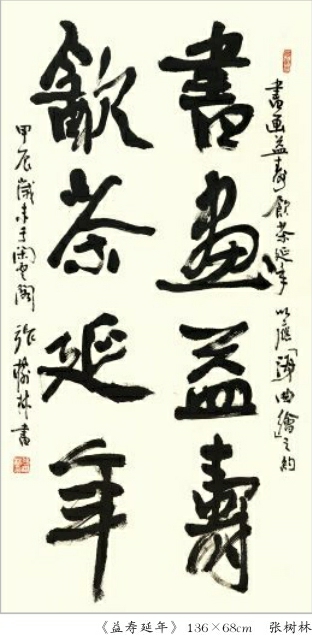 書画益寿飲茶延年 以應「曲繪」之約
書畫益壽
飲茶延年
甲辰歲末于閑雲閣 張樹林書
《益寿延年》136×68cm 张树林